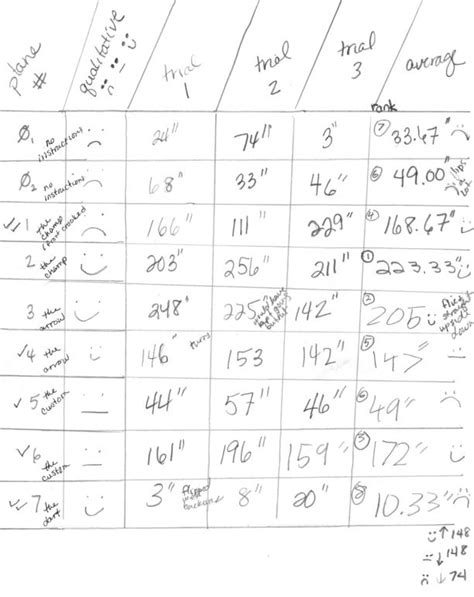 plane # qualitative trial 1 trial 2 trial 3 average
rank
Ø1 no instructions 24" 74" 3" ⑦ 33.67"
Ø2 no instructions 68" 33" 46" ⑥ 49.00"
✓✓1 the champ 166" 111" 229" ④ 168.67"
2 the champ 203" 256" 211" ① 223.33"
3 the arrow 248" 225" 142" ② 205
✓4 the arrow 146" turns 153 142" ⑤ 147"
✓5 the custom 44" 57" 46" ⑥ 49"
✓6 the custom 161" 196" 159" ③ 172"
✓✓7 the dart 3" 8" 20" ⑧ 10.33"
↑ 148
↓ 148
↓ 74